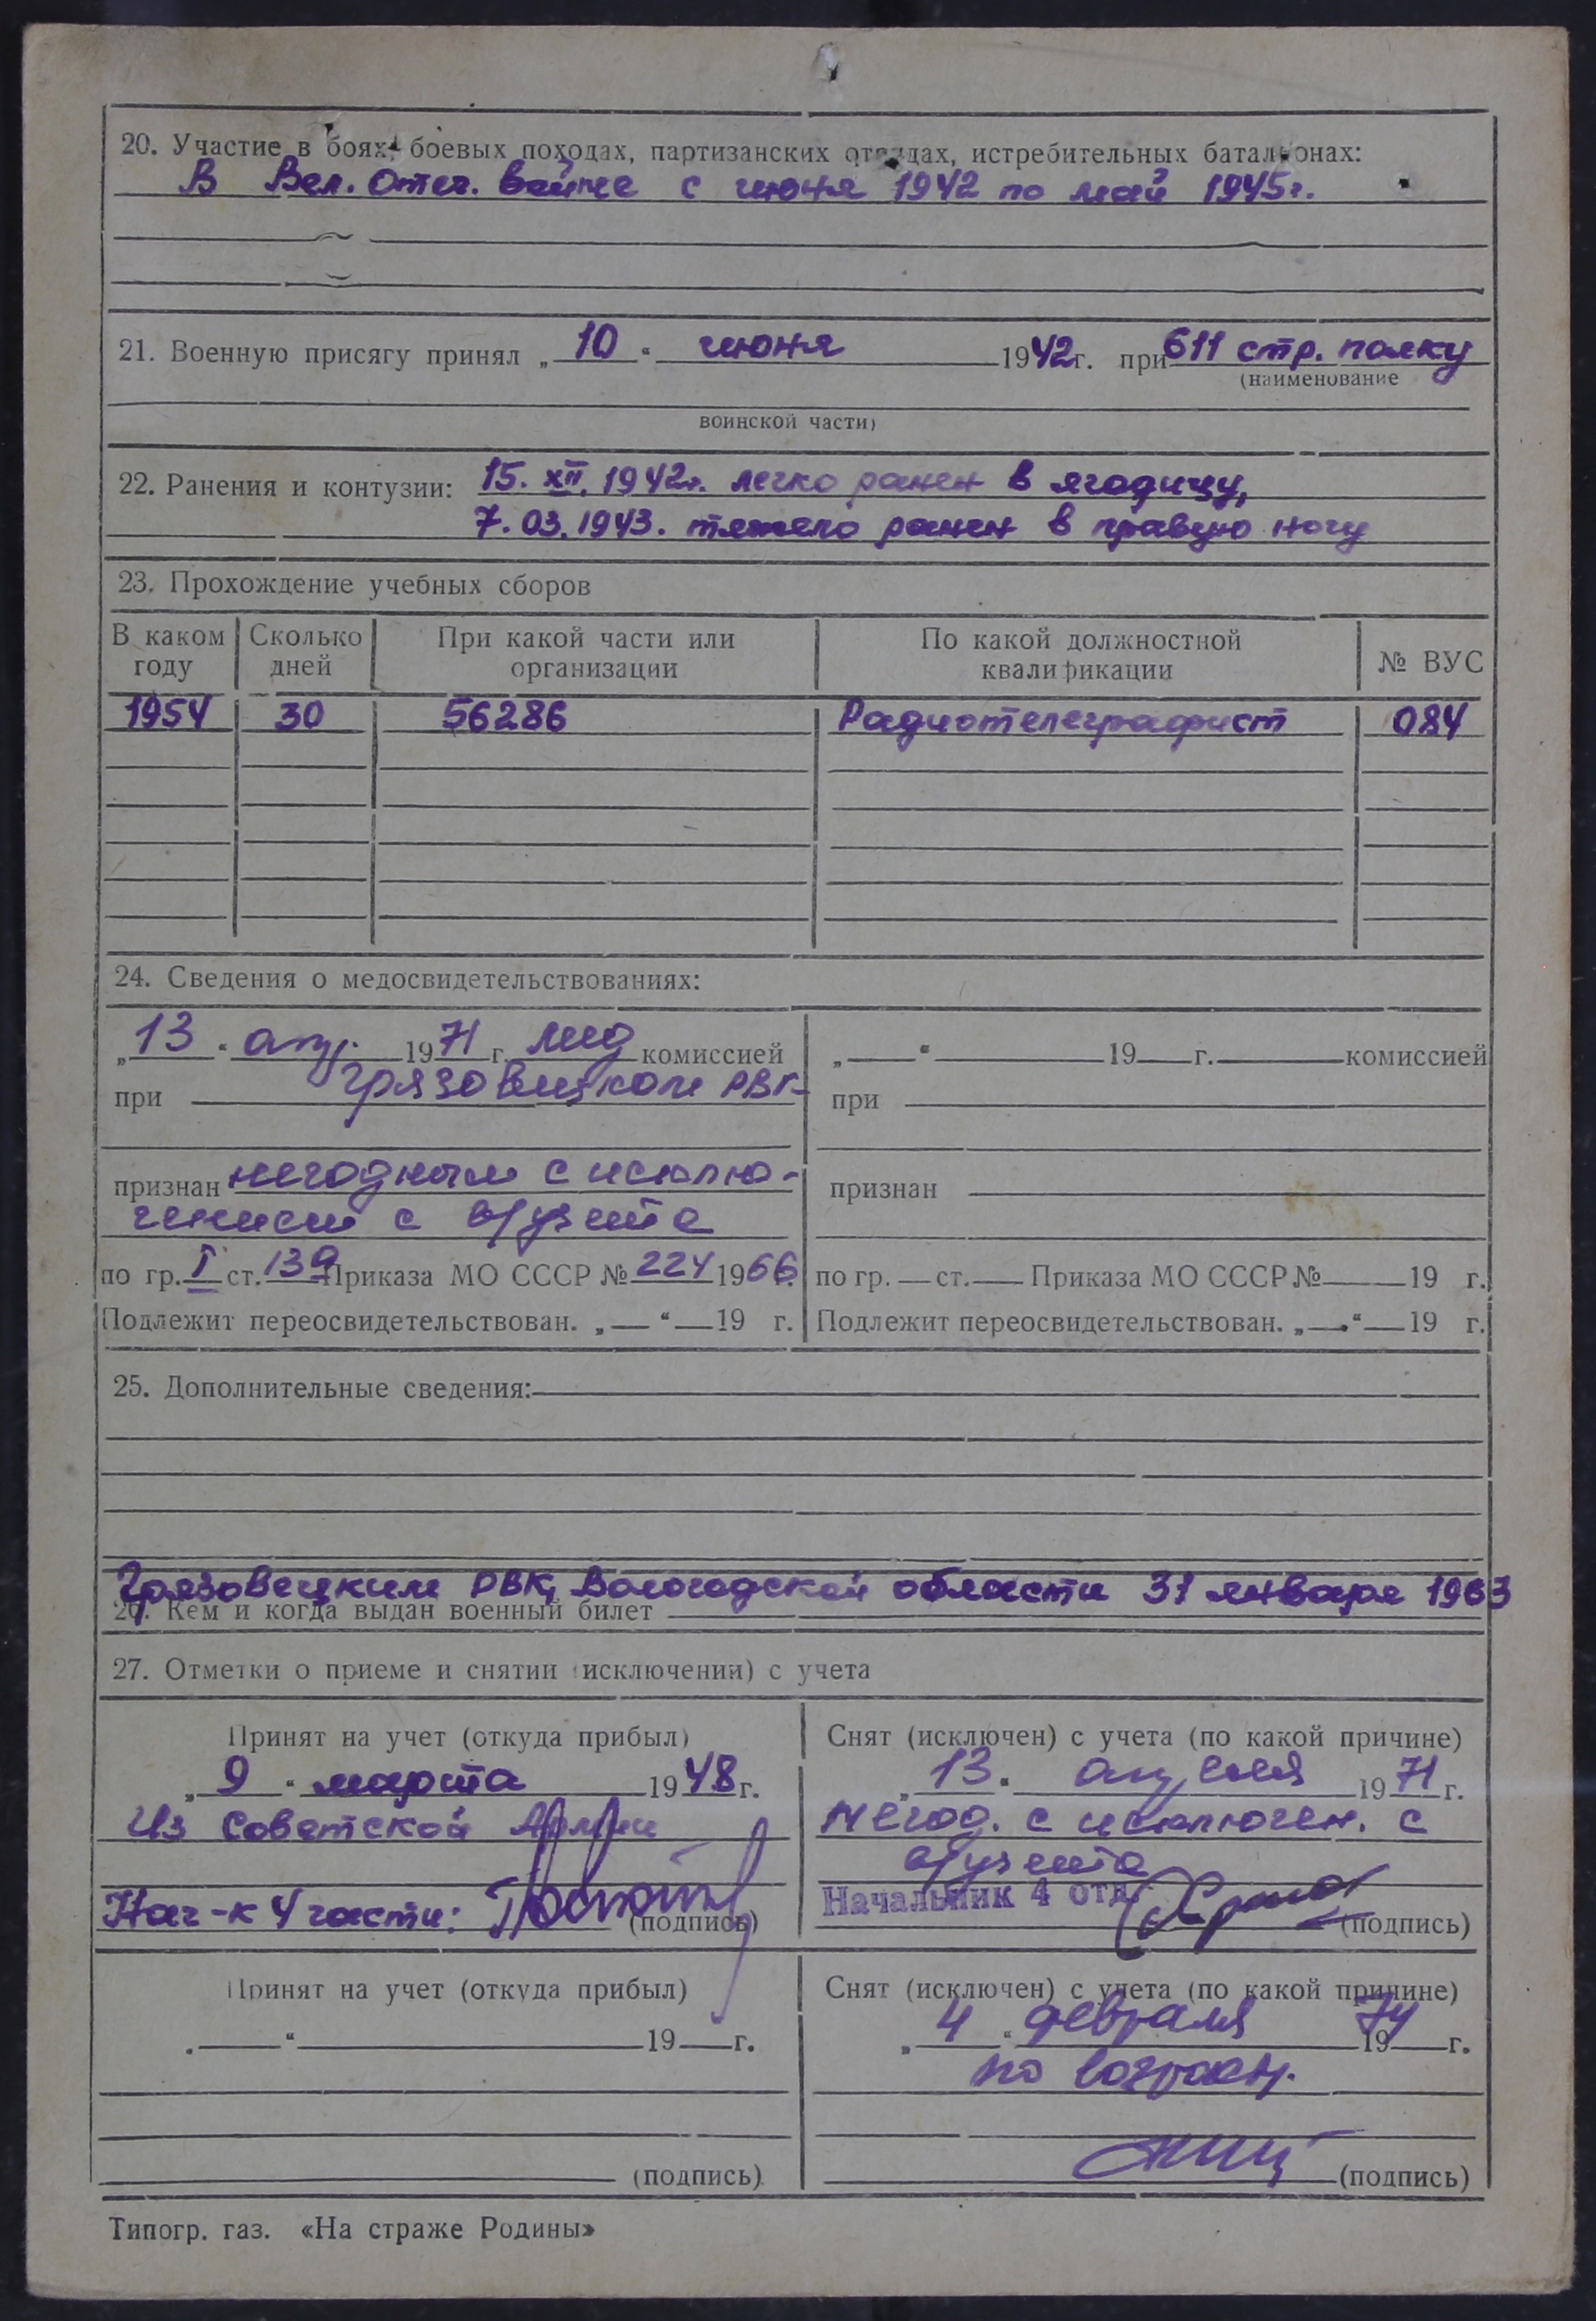 20. Участие в боях, боевых походах, партизанских отрядах, истребительных батальонах:
В Вел. Отеч. войне с июня 1942 по май 1945г.
21. Военную присягу принял „ 10 “ июня 1942г. при 611 стр. полку
(наименование
воинской части)
22. Ранения и контузии: 15. XII. 1942г. легко ранен в ягодицу,
7. 03. 1943. тяжело ранен в правую ногу
23. Прохождение учебных сборов
В каком году Сколько дней При какой части или организации По какой должностной квалификации № ВУС
1954 30 56286 Радиотелеграфист 084
24. Сведения о медосвидетельствованиях:
„ 13 “ апр. 1971 г. мед комиссией
при Грязовецком РВК
признан негодным с исклю-
чением с в/учета
по гр. I ст. 13а Приказа МО СССР № 224 1966
Подлежит переосвидетельствован. „ — “ — 19 г.
„ — “ 19 г. комиссией
при
признан
по гр. — ст. — Приказа МО СССР № 19 г.
Подлежит переосвидетельствован. „ — “ — 19 г.
25. Дополнительные сведения:
Грязовецким РВК, Вологодской области 31 января 1963
26. Кем и когда выдан военный билет
27. Отметки о приеме и снятии (исключении) с учета
Принят на учет (откуда прибыл)
„ 9 “ марта 1948 г.
Из Советской Армии
Нач-к 4 части: (подпись)
Снят (исключен) с учета (по какой причине)
„ 13 “ апреля 1971 г.
Негод. с исключен. с
в/учета
Начальник 4 отд. (подпись)
Принят на учет (откуда прибыл)
„ — “ 19 — г.
(подпись)
Снят (исключен) с учета (по какой причине)
„ 4 “ февраля 1974 г.
по возраст.
(подпись)
Типогр. газ. «На страже Родины»